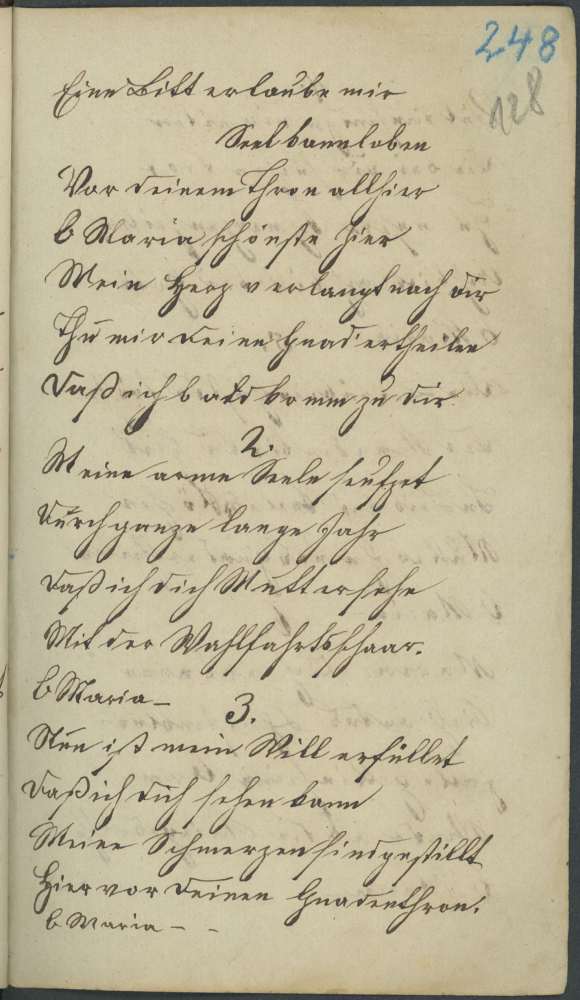 248
128
Eine Bitt erlaube mir
Vor deinem Thron allhier
O Maria schönste Zier
Mein Herz verlangt nach dir
Thu mir deine Gnad ertheilen
Daß ich bald komm zu dir
2.
Meine arme Seele seufzet
Durch ganze lange Jahr
Daß ich dich Mutter sehe
Mit der Wahlfahrtsschaar.
O Maria –
3.
Nun ist mein Will erfüllet
Daß ich dich sehen kann
Meine Schmerzen sind gestillt
Hier vor deinen Gnadenthron.
O Maria – –